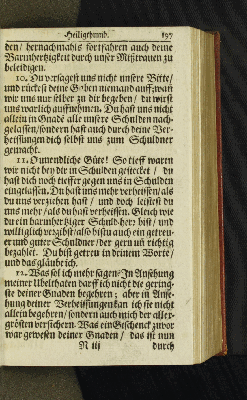 Heiligthumb. 197
den/ hernachmahls fortfahren auch deine
Barmhertzigkeit durch unser Mißtrauen zu
beleidigen.
10. Du versagest uns nicht unsere Bitte/
und rückest deine Gaben niemand auff; wañ
wir uns nur selber zu dir begeben/ du wirst
uns warlich auffnehmen. Du hast uns nicht
allein in Gnadē alle unsere Schulden nach-
gelassen/ sondern hast auch durch deine Ver-
heissungen dich selbst uns zum Schuldner
gemacht.
11. O unendliche Güte! So tieff waren
wir nicht bey dir in Schulden gestecket/ du
hast dich noch tieffer gegen uns in Schulden
eingelassen. Du hast uns mehr verheissen/ als
du uns verziehen hast/ und doch leistest du
uns mehr/ als du hast verheissen. Gleich wie
du ein barmhertziger Schuldherr bist/ und
williglich vergibst/ also bistu auch ein getreu-
er und guter Schuldner/ der gern uñ richtig
bezahlet. Du bist getreu in deinem Worte/
und das glaub ich.
12. Was sol ich mehr sagen? In Ansehung
meiner Ubelthaten darff ich nicht die gering-
ste deiner Gnaden begehren; aber in Anse-
hung deiner Verheissungen kan ich sie nicht
allein begehren/ sondern auch mich der aller-
grösten versichern. Was ein Geschenck zuvor
war gewesen deiner Gnaden/ das ist nun
N iij durch